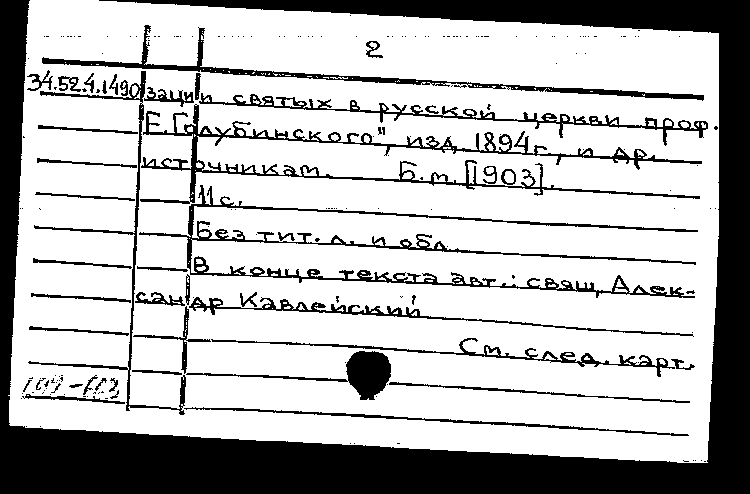 2
34.52.4.1490 зации святых в русской церкви проф.
Е. Голубинского", изд. 1894г., и др.
источникам. Б.м. [1903].
11 с.
Без тит. л. и обл.
В конце текста авт.: свящ. Алек-
сандр Кавлейский
См. след. карт.